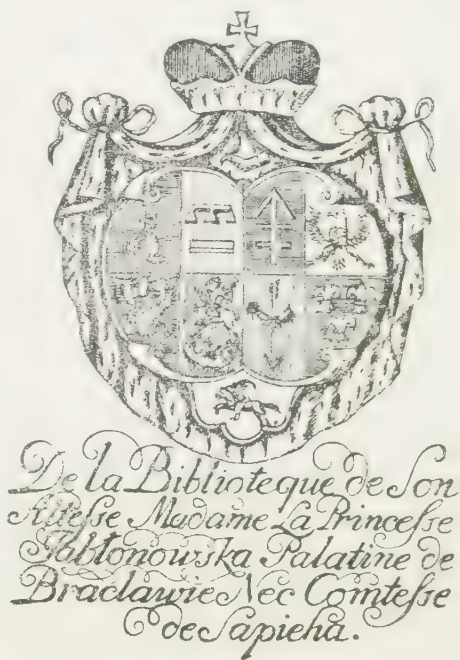 De la Biblioteque de Son
Altesse Madame La Princesse
Jabłonowska Palatine de
Bracławie Nec Comtesse
de Sapieha.